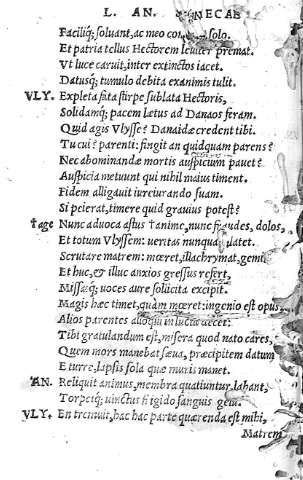 L. AN. NECAE
Faciliq; soluant, ac meo con solo.
Et patria tellus Hectorem leuiter premat.
Vt luce caruit, inter extinctos iacet.
Datusq; tumulo debita exanimis tulit.
VLY. Expleta fata stirpe sublata Hectoris,
Solidamq; pacem Letus ad Danaos feram.
Quid agis Vlysse? Danaidæ credent tibi.
Tu cui? parenti: fingit an quidquam parens?
Nec abominandæ mortis auspicium pauet?
Auspicia metuunt qui nihil maius timent.
Fidem alligauit iureiurando suam.
Si peierat, timere quid grauius potest?
†age Nunc aduoca astus †anime, nunc fraudes, dolos,
Et totum Vlyssem: ueritas nunquã latet.
Scrutare matrem: mœret, illachrymat, gemit
Et huc, & illuc anxios gressus refert,
Missasq; uoces aure solicita excipit.
Magis hæc timet, quàm mœret: ingenio est opus
Alios parentes alloqui in luctu decet:
Tibi gratulandum est, misera quod nato cares,
Quem mors manebat sæua, præcipitem datum
E turre, lapsis sola quæ muris manet.
AN. Reliquit animus, membra quatiuntur, labant,
Torpetq; uinctus frigido sanguis gelu.
VLY. En tremuit, hac hac parte quærenda est mihi,
Matrem